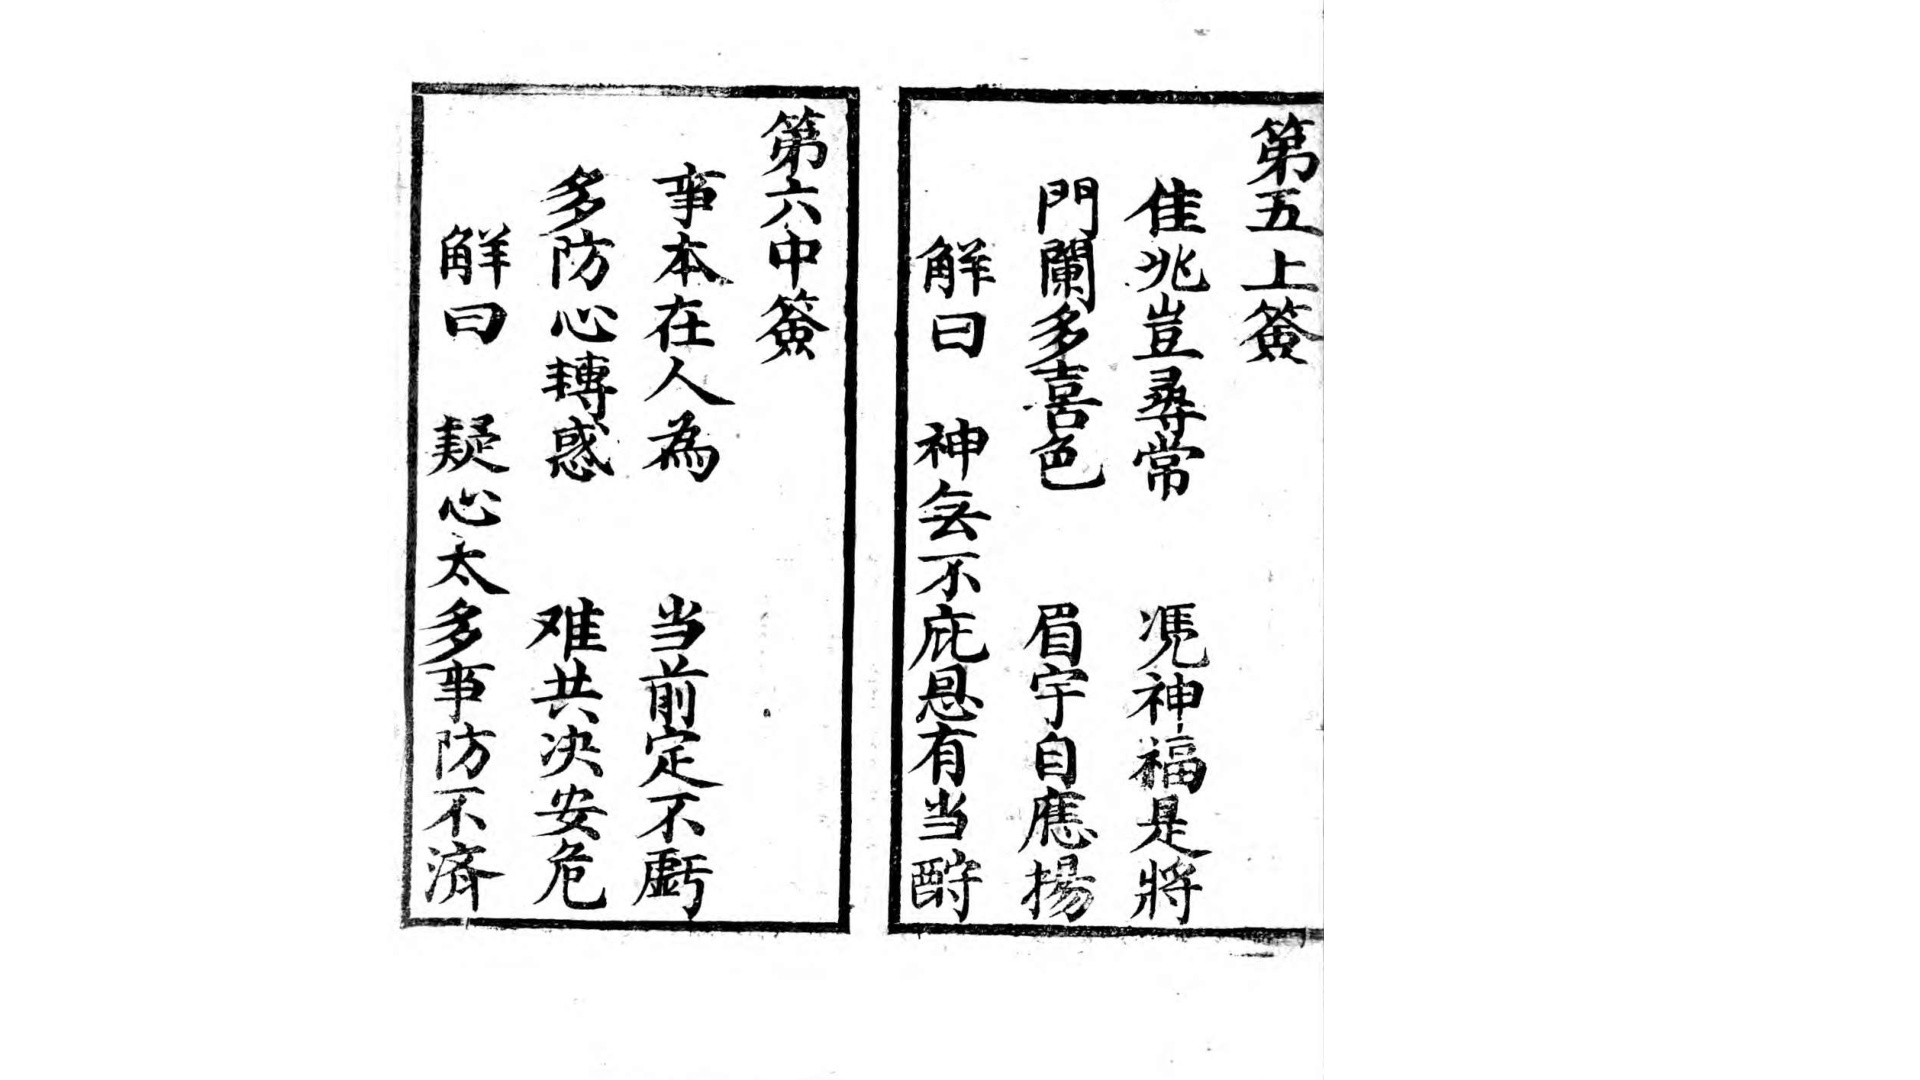 第五上簽
佳兆豈尋常　凭神福是將
門闌多喜色　眉宇自應揚
解曰　神无不庇恩有当酧
第六中簽
事本在人為　当前定不虧
多防心轉惑　难共决安危
解曰　疑心太多事防不済